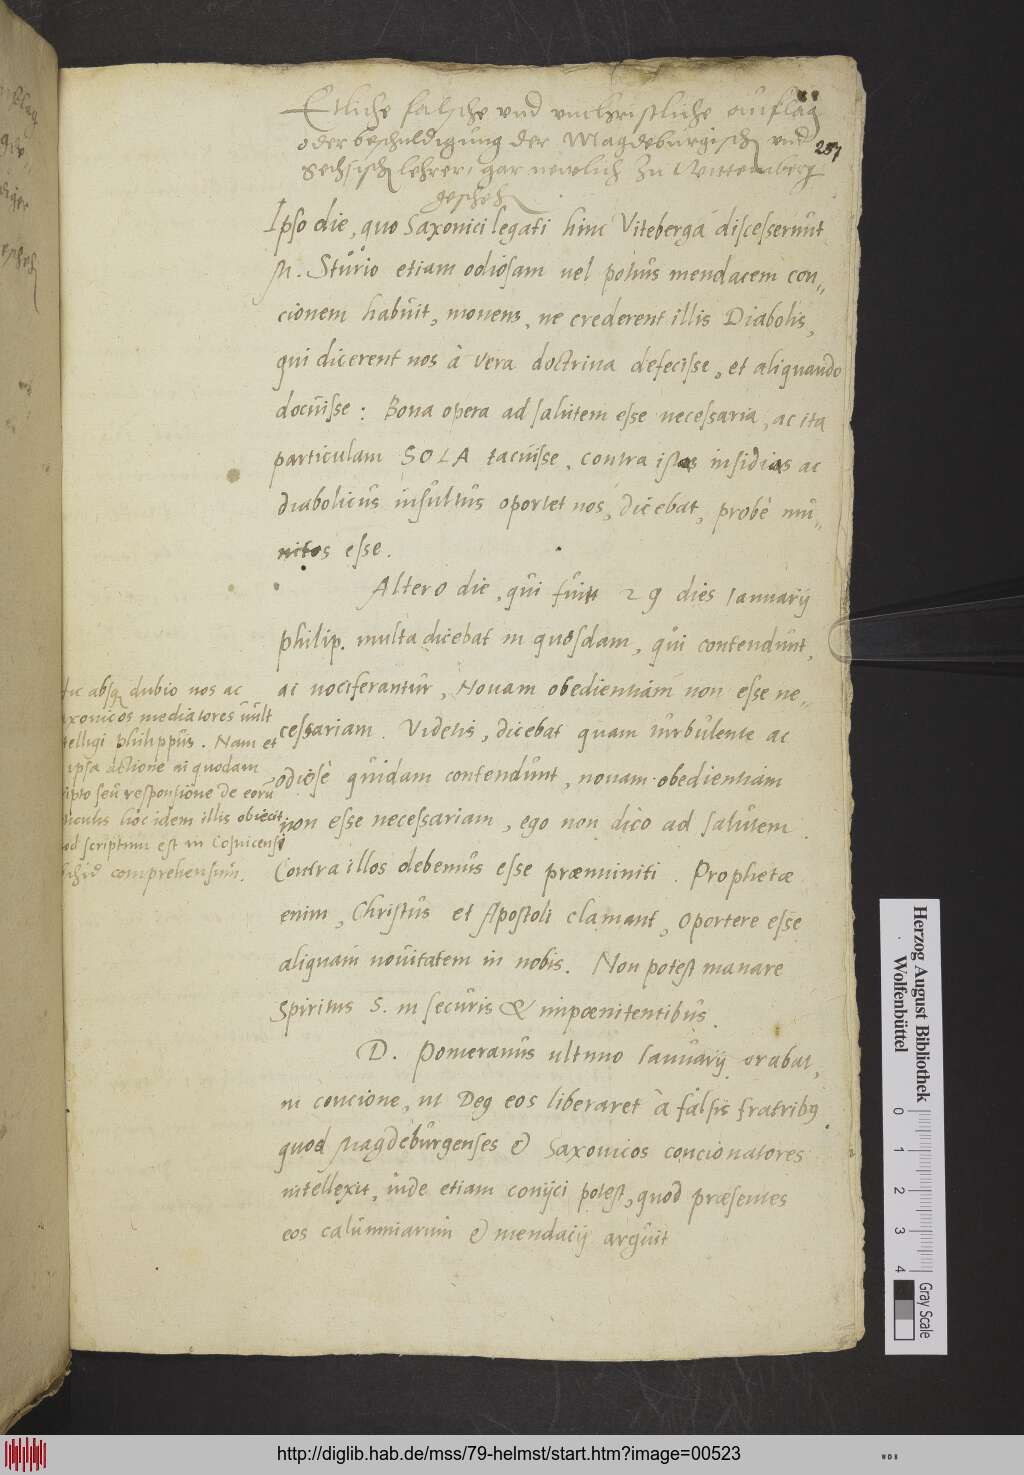 Etliche falsche und unchristliche auflag
oder beschuldigung der Magdeburgisch und
251
Sechsisch lehrer, gar newlich zu Wittemberg
gescheh
Ipso die, quo Saxonici legati hinc Viteberga discesserunt
M. Sturio etiam odiosam vel potius mendacem con„
cionem habuit, monens, ne crederent illis Diabolis,
qui dicerent nos à vera doctrina defecisse, et aliquando
docuisse: Bona opera ad salutem esse necessaria, ac ita
particulam SOLA tacuisse, contra istas insidias ac
diabolicus insultus oportet nos, dicebat, probè mu„
nitos esse.
Altero die, qui fuit 29 dies Ianuarij
philip. multa dicebat in quosdam, qui contendunt,
ac vociferantur, Novam obedientiam non esse ne„
cessariam. Videtis, dicebat quam turbulente ac
odiosè quidam contendunt, novam obedientiam
non esse necessariam, ego non dico ad salutem.
Contra illos debemus esse præmuniti. Prophetæ
enim, Christus et Apostoli clamant, oportere esse
aliquam novitatem in nobis. Non potest manare
Spiritus S. in securis & impœnitentibus.
D. Pomeranus ultimo Ianuarij orabat,
in concione, ut Deus eos liberaret à falsis fratribus
quod Magdeburgenses & Saxonicos concionatores
intellexit, inde etiam conijci potest, quod præsentes
eos calumniarum & mendacij arguit
absq dubio nos ac
xonicos mediatores vult
telligi philippus. Nam et
ipsa actione ac quodam
ipto seu responsione de eorū
ticulis hoc idem illis obiecit,
od scriptum est in Cosvicensi
comprehensum.
Herzog August Bibliothek
Wolfenbüttel
0 1 2 3 4
Gray Scale
http://diglib.hab.de/mss/79-helmst/start.htm?image=00523
WDB